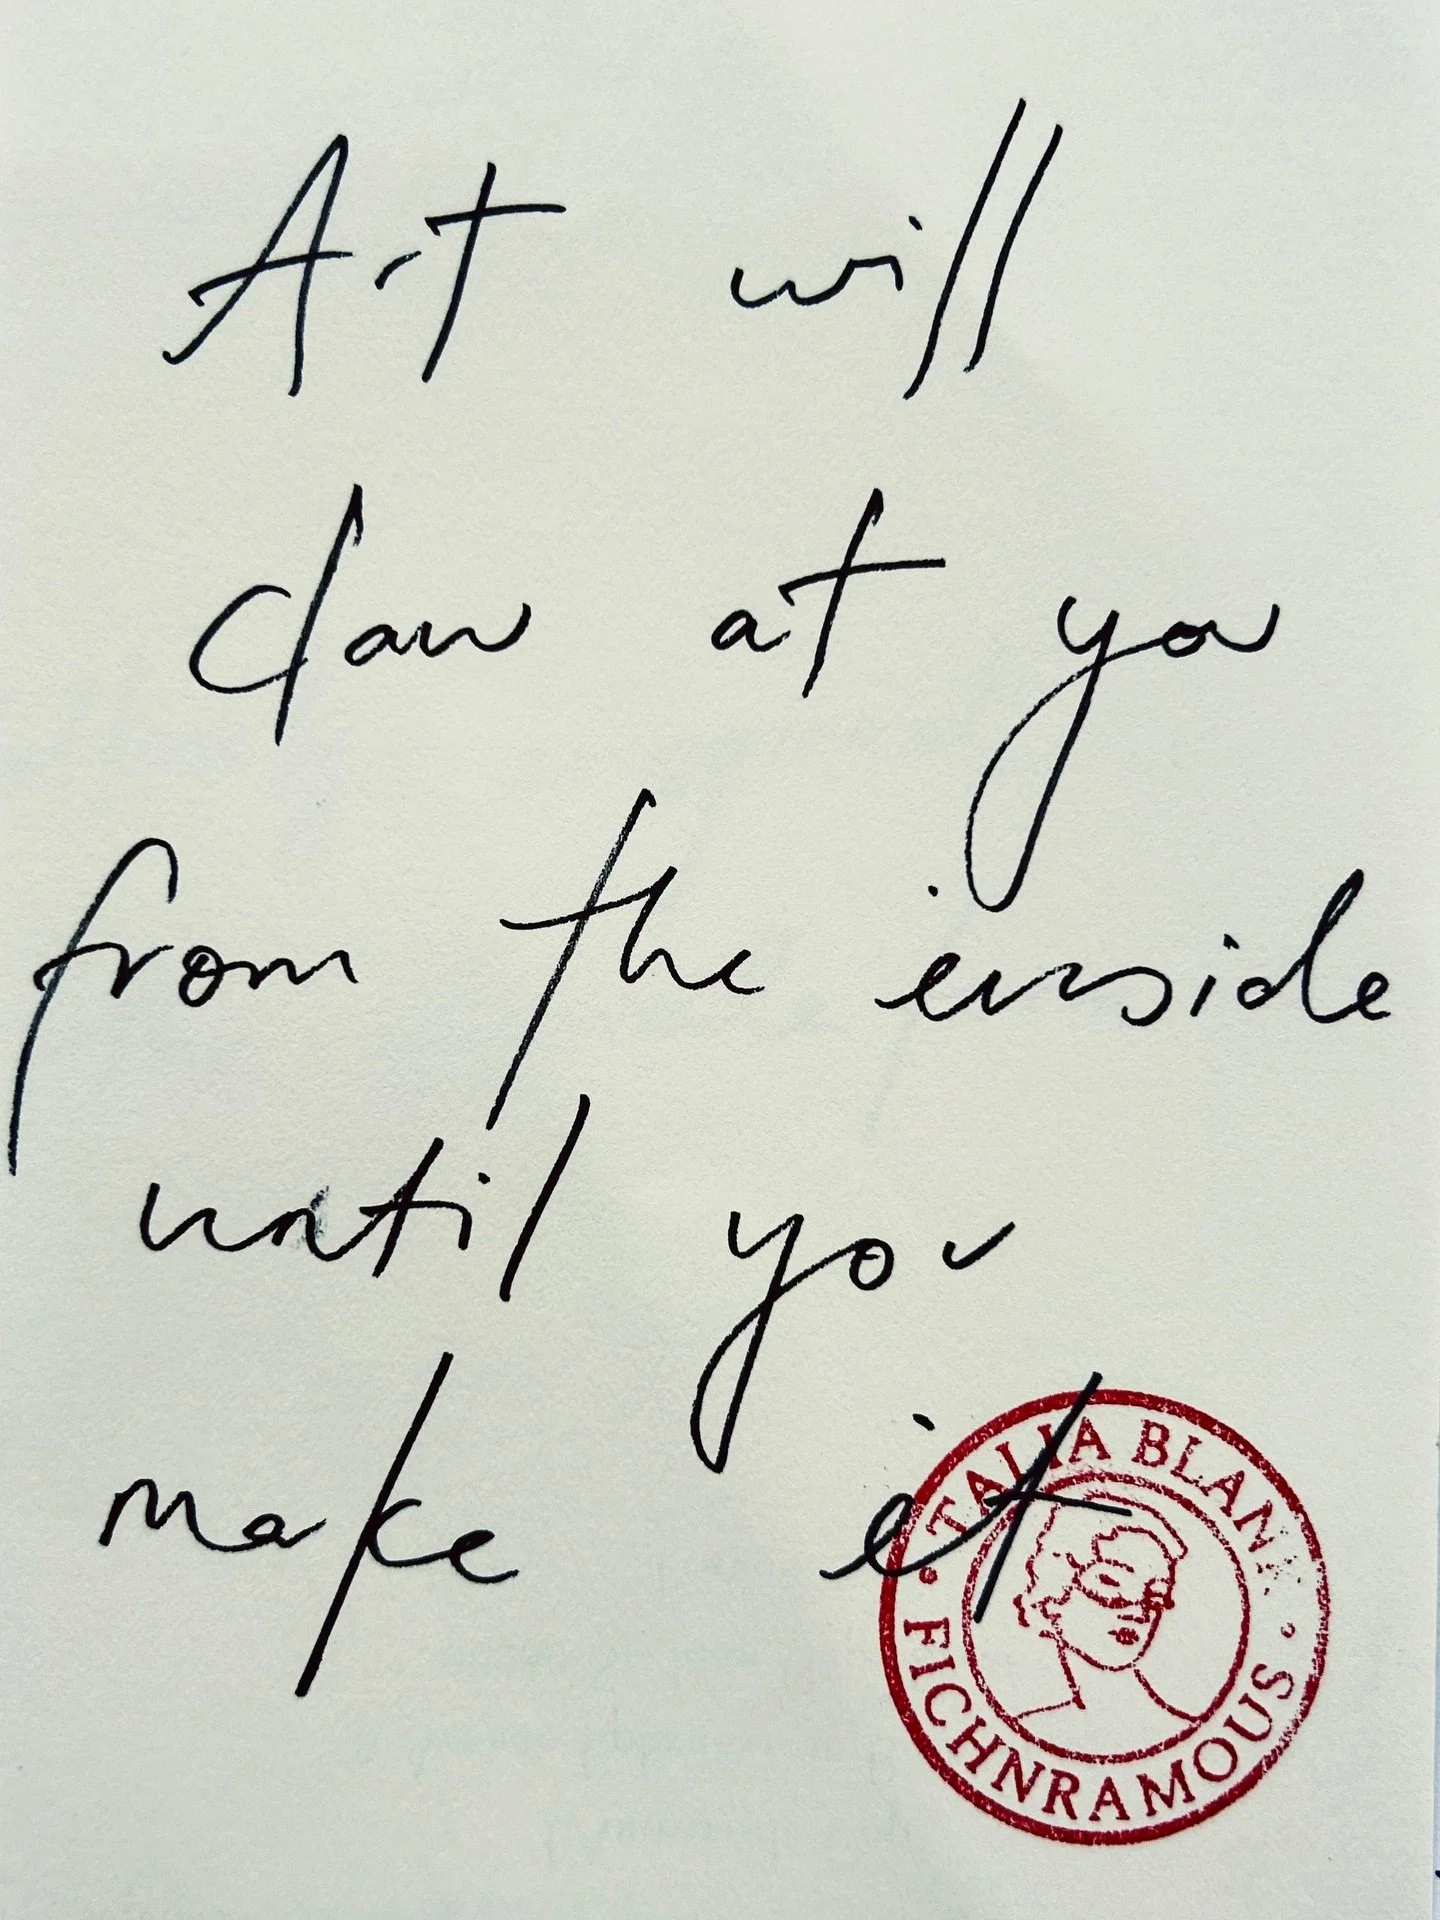 Art will
claw at you
from the inside
until you
make it
TALIA BLAN
FICHNRAMOUS